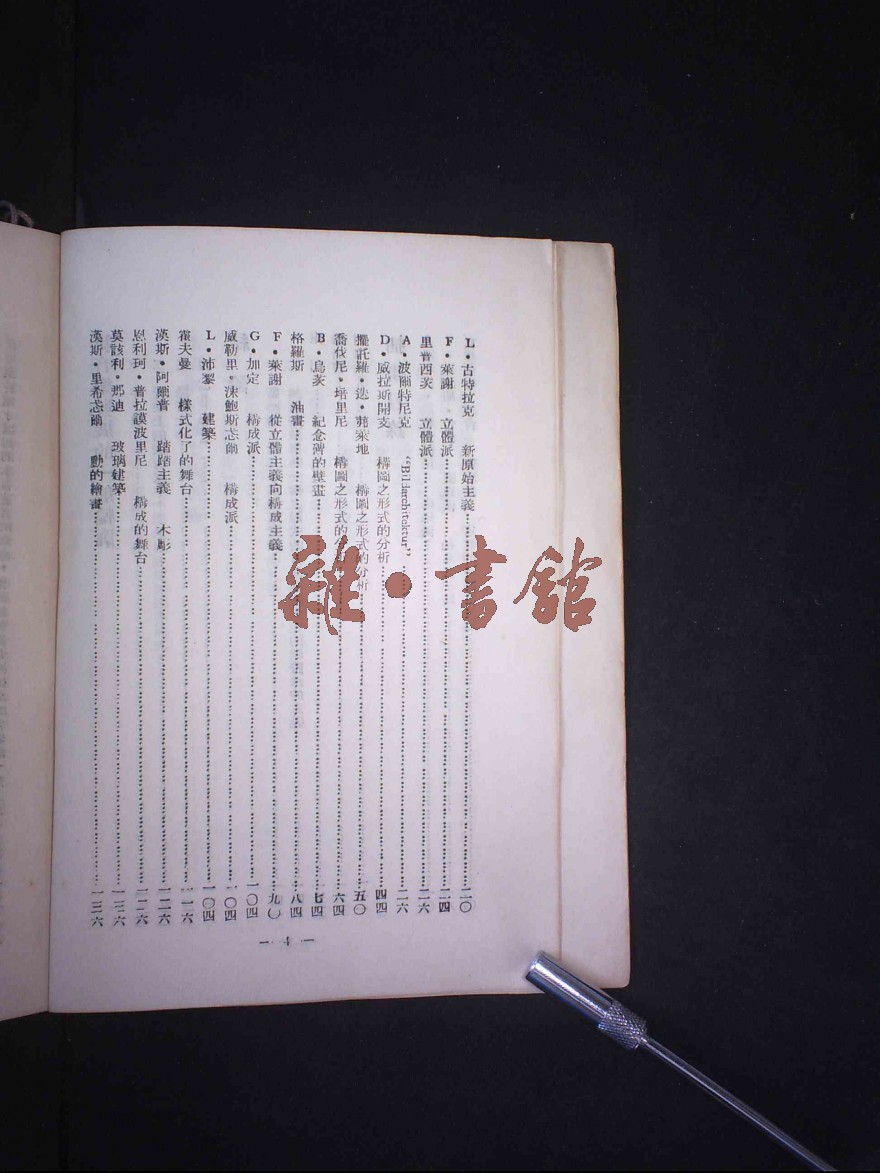 L・古特拉克　新原始主義……二〇
F・萊謝　立體派……二四
里普西茨　立體派……二六
A・波爾特尼克　“Bildarchitektur”……二六
D・威拉斯開支　構圖之形式的分析……四四
擺託羅・送・茀萊地　構圖之形式的分析……五〇
喬伐尼・培里尼　構圖之形式的分析……六四
B・烏茨　紀念碑的壁畫……七四
格羅斯　油畫……八四
F・萊謝　從立體主義向構成主義……九〇
G・加定　構成派……一〇四
威勒里・沫鮑斯忒爾　構成派……一〇四
L・沛黎　建築……一〇四
霍夫曼　樣式化了的舞台……一一六
漢斯・阿爾普　踏踏主義　木彫……一二六
恩利珂・普拉謨波里尼　構成的舞台……一二六
莫該利・那迪　玻璃建築……一三六
漢斯・里希忒爾　動的繪畫……一三六
— 4 —
雜・書館